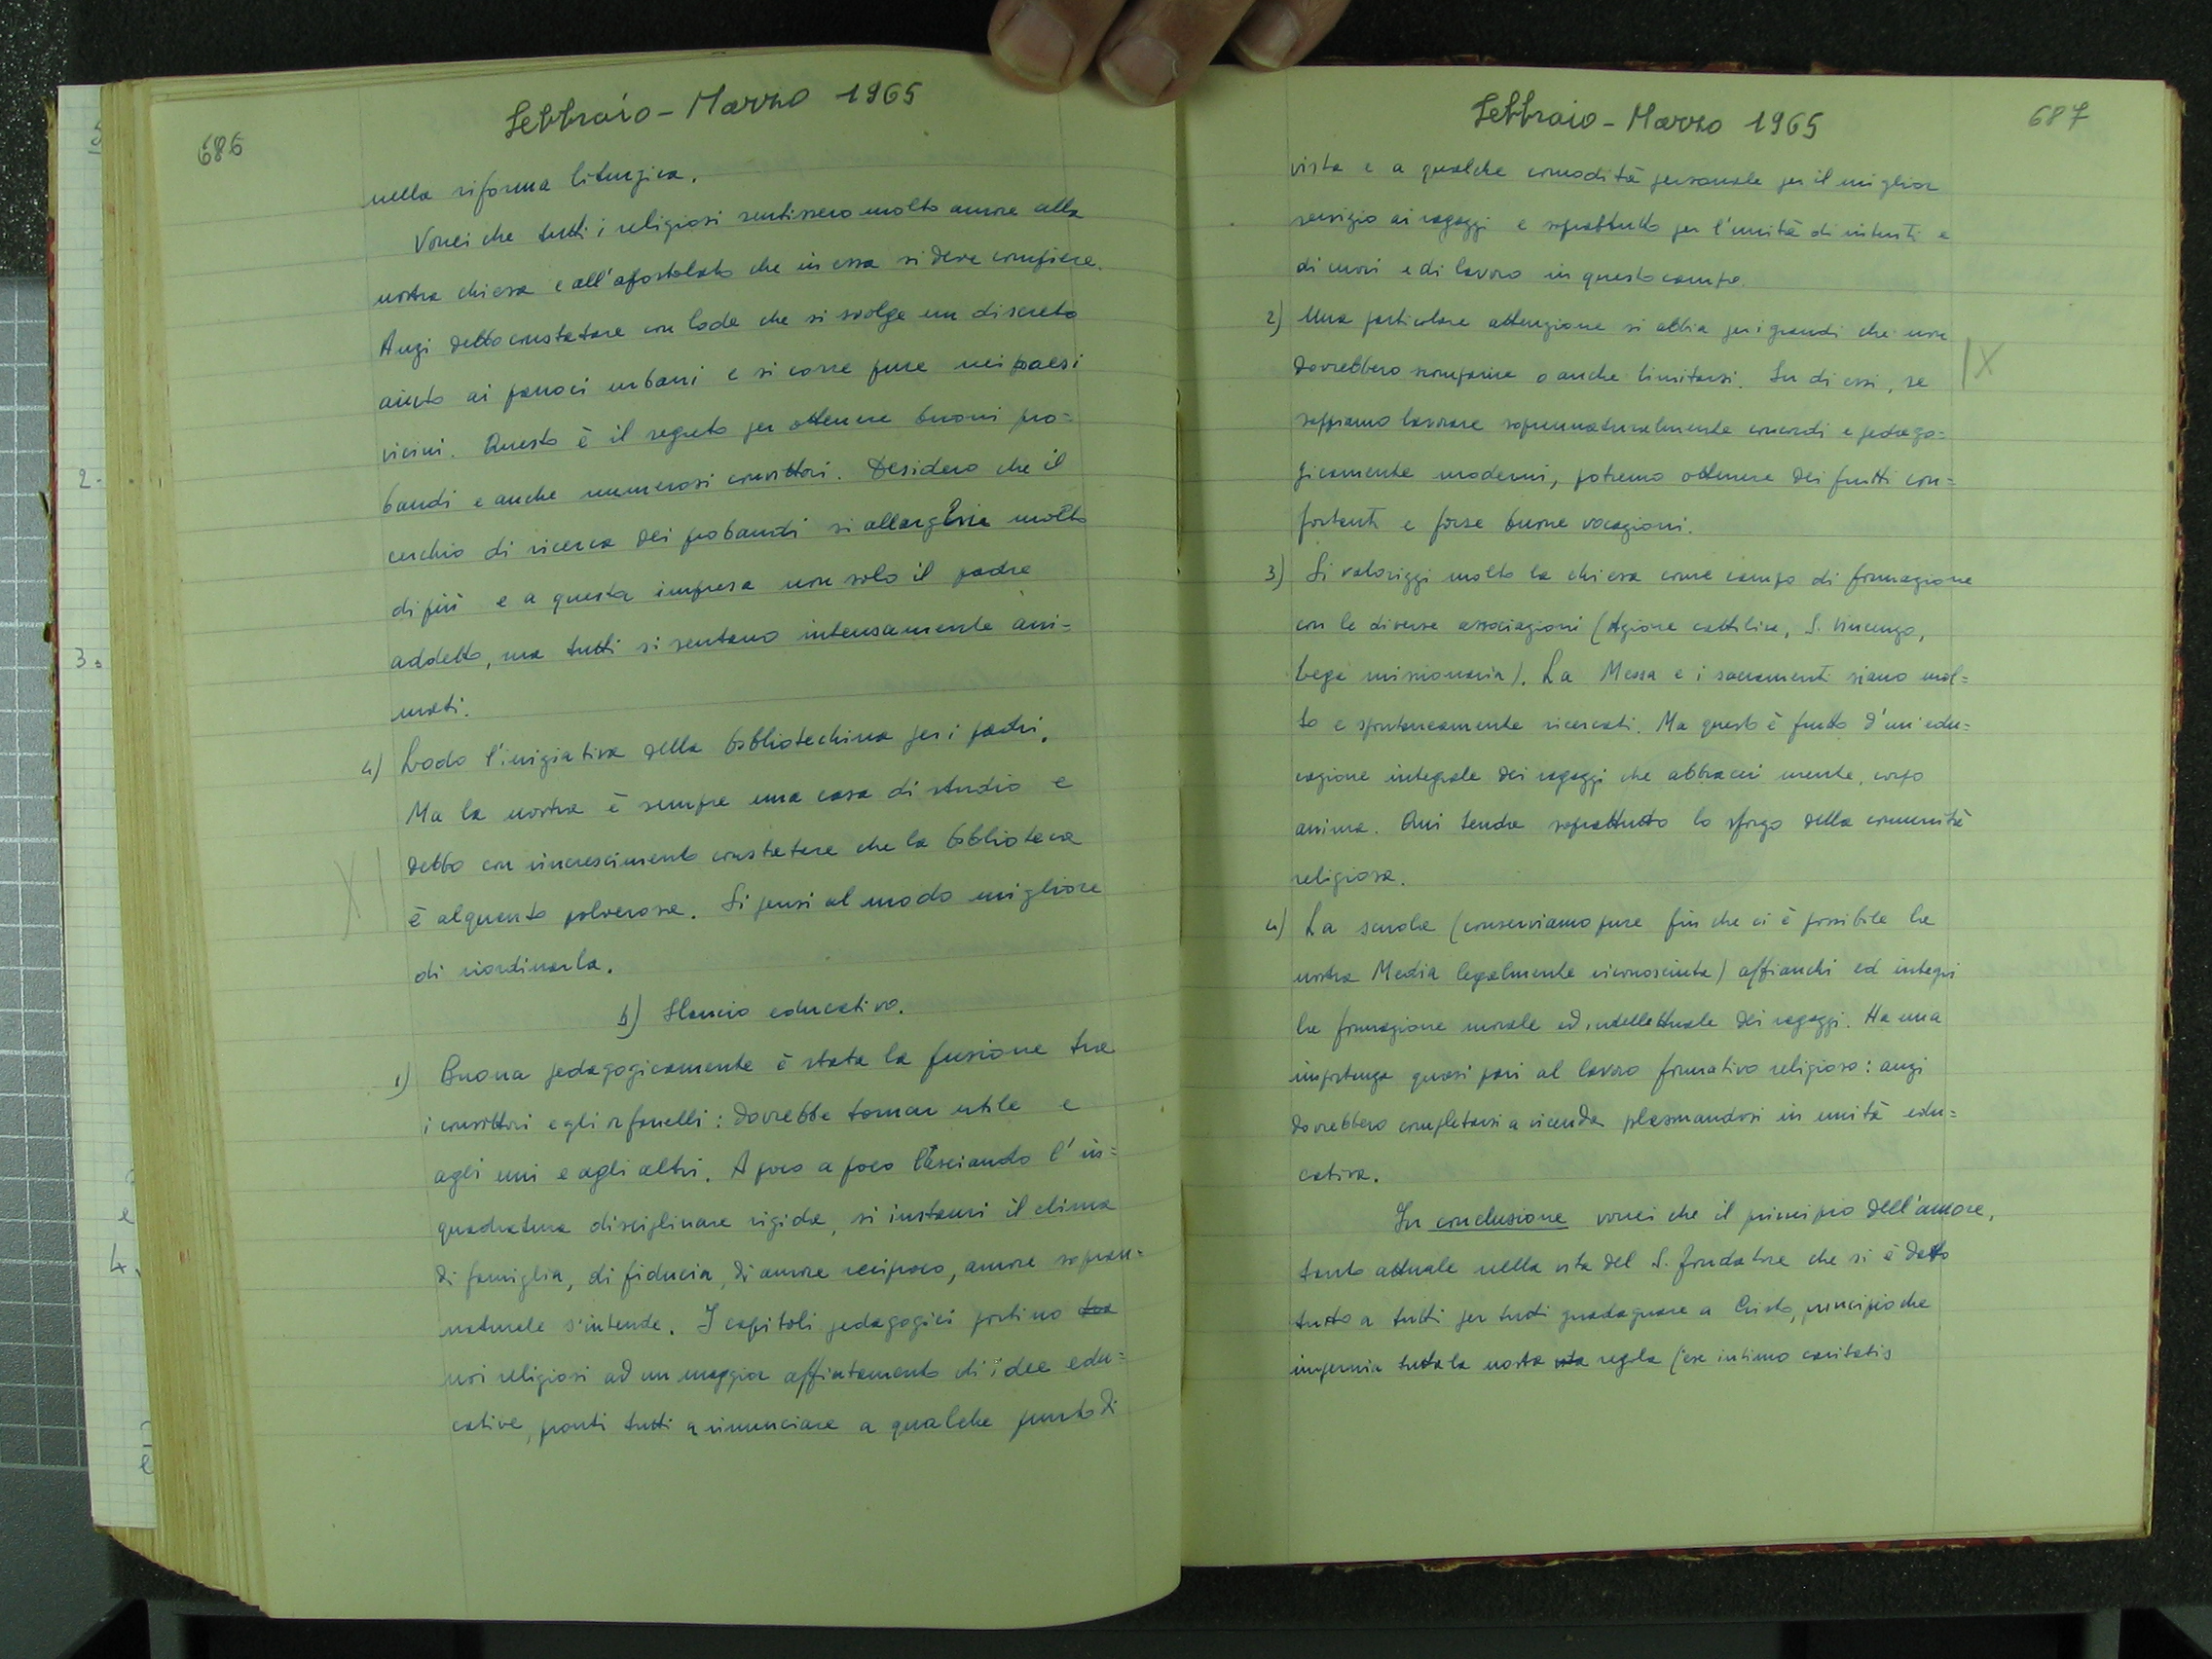 686
Febbraio - Marzo 1965
nella riforma liturgica.
Vorrei che tutti i religiosi sentissero molto amore alla
nostra chiesa e all'apostolato che in essa si deve compiere.
Anzi debbo constatare con lode che si svolge un discreto
aiuto ai parroci urbani e si corre pure nei paesi
vicini. Questo è il segreto per ottenere buoni pro=
bandi e anche numerosi convittori. Desidero che il
cerchio di ricerca dei probandi si allarghi molto
di più e a questa impresa non solo il padre
addetto, ma tutti si sentano intensamente ani=
mati.
4) Lodo l'iniziativa della bibliotechina per i padri.
Ma la nostra è sempre una casa di studio e
debbo con rincrescimento constatare che la biblioteca
è alquanto polverosa. Si pensi al modo migliore
di riordinarla.
b) Slancio educativo.
1) Buona pedagogicamente è stata la fusione tra
i convittori e gli orfanelli: dovrebbe tornar utile e
agli uni e agli altri. A poco a poco lasciando l'in=
quadratura disciplinare rigida, si instauri il clima
di famiglia, di fiducia, di amore reciproco, amore sopran=
naturale s'intende. I capitoli pedagogici portino tra
noi religiosi ad un maggior affiatamento di idee edu=
cative, pronti tutti a rinunciare a qualche punto di
Febbraio - Marzo 1965
687
vista e a qualche comodità personale per il miglior
servizio ai ragazzi e soprattutto per l'unità di intenti e
di cuori e di lavoro in questo campo.
2) Una particolare attenzione si abbia per i grandi che non
dovrebbero scomparire o anche limitarsi. In di essi, se
sappiamo lavorare soprannaturalmente concordi e pedago=
gicamente moderni, potremo ottenere dei frutti con=
fortanti e forse buone vocazioni.
3) Si valorizzi molto la chiesa come campo di formazione
con le diverse associazioni (Azione cattolica, S. Vincenzo,
Lega missionaria). La Messa e i sacramenti siano mol=
to e spontaneamente ricercati. Ma questo è frutto d'un'edu=
cazione integrale dei ragazzi che abbracci mente, corpo
anima. Qui tenda soprattutto lo sforzo della comunità
religiosa.
4) La scuola (conserviamo pure fin che ci è possibile la
nostra Media legalmente riconosciuta) affianchi ed integri
la formazione morale ed intellettuale dei ragazzi. Ha una
importanza quasi pari al lavoro formativo religioso: anzi
dovrebbero completarsi a vicenda plasmandosi in unità edu=
cativa.
In conclusione vorrei che il principio dell'amore,
tanto attuale nella vita del S. Fondatore che si è dato
tutto a tutti per tutti guadagnare a Cristo, principio che
impernia tutta la nostra vita regola (ex intimo caritatis